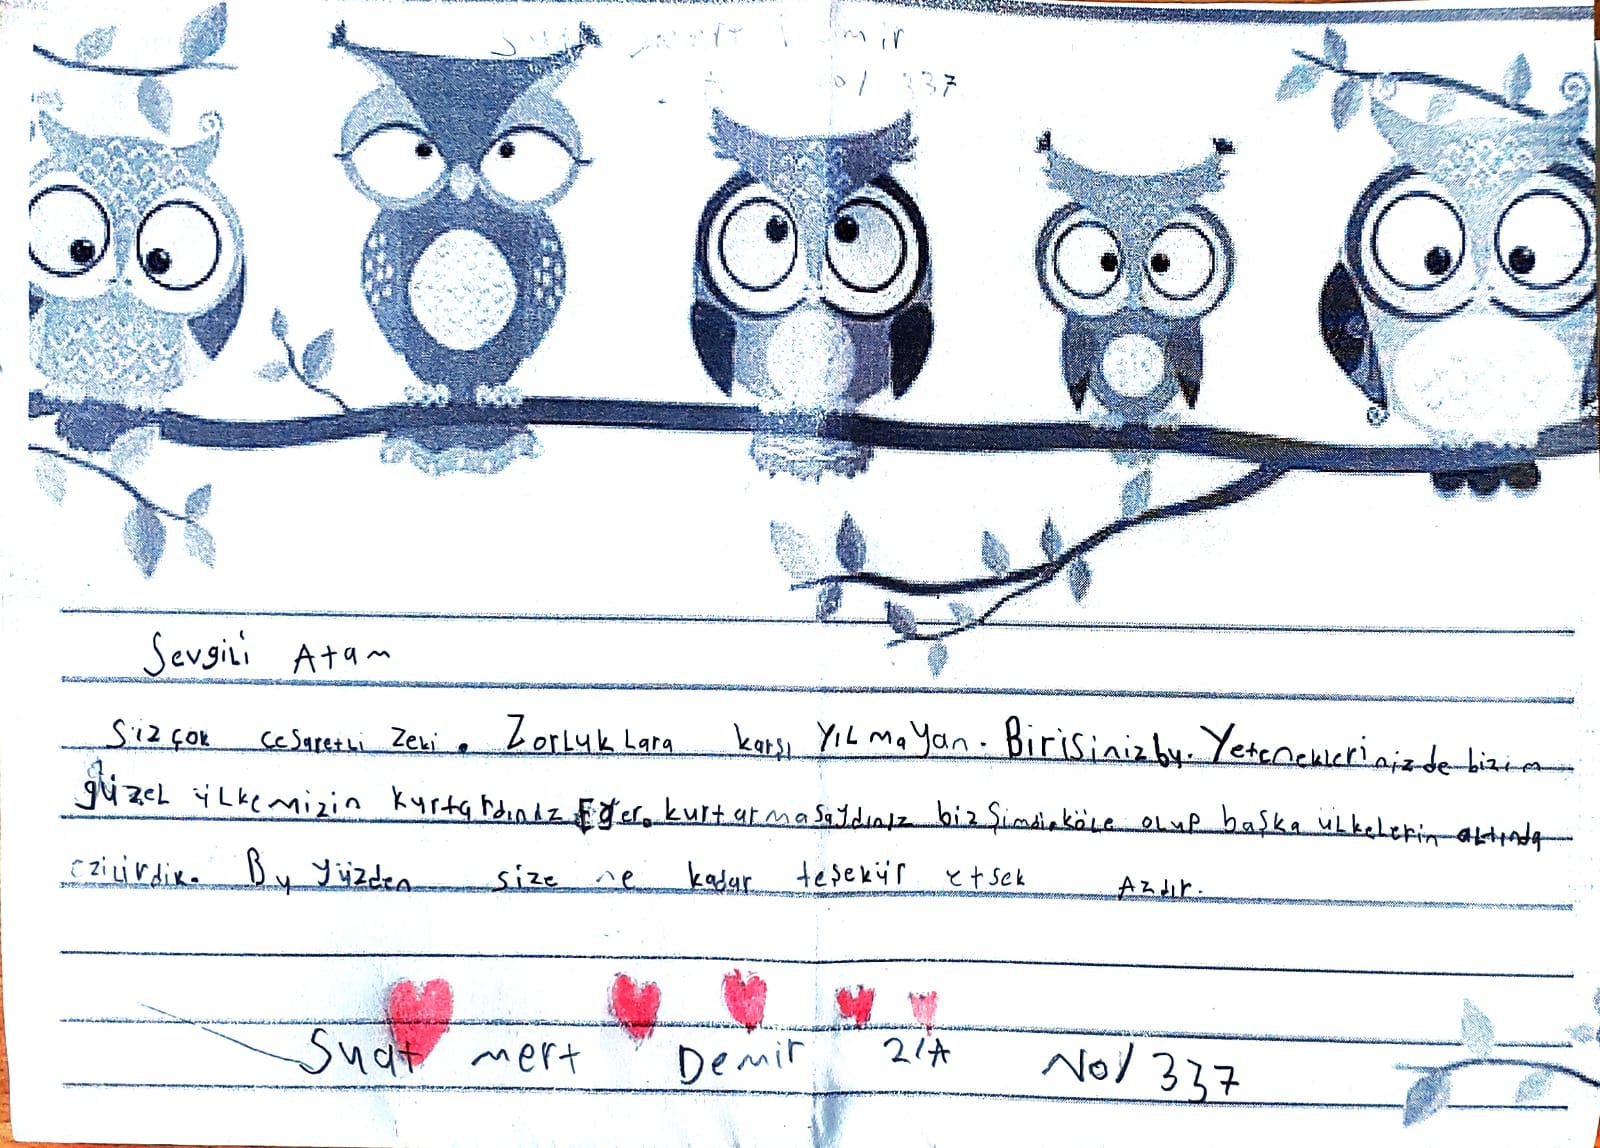 mir
337
Sevgili Atam
Siz çok cesaretli zeki. Zorluklara karşı yılmayan. Birisiniz bu. Yeteneklerinizde bizim
güzel ülkemizin kurtardınız Eğer. kurtarmasaydınız biz şimdi köle olup başka ülkelerin altında
ezilirdik. Bu yüzden size ne kadar teşekür etsek Azdır.
Suat mert Demir 2/A No/ 337